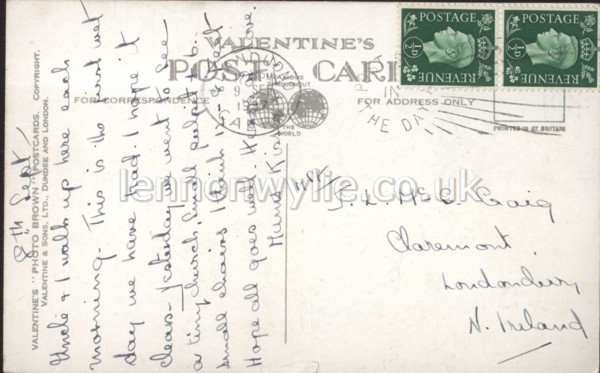 VALENTINE'S
POST CARD
FOR CORRESPONDENCE
FOR ADDRESS ONLY
POSTAGE
½D
REVENUE
POSTAGE
½D
REVENUE
FAMOUS THROUGHOUT THE WORLD
PRINTED IN GT BRITAIN
VALENTINE'S "PHOTO BROWN" POSTCARDS. COPYRIGHT.
VALENTINE & SONS, LTD., DUNDEE AND LONDON.
8th Sept
Uncle & I walk up here each
morning. This is the first wet
day we have had. I hope it
clears - yesterday we went to see
a tiny church, small pulpit & 6
small chairs I think 12 - 8 feet
Hope all goes well. Heaps of love.
Mrs
Craig
Claremont
Londonderry
N. Ireland
lennonwylie.co.uk